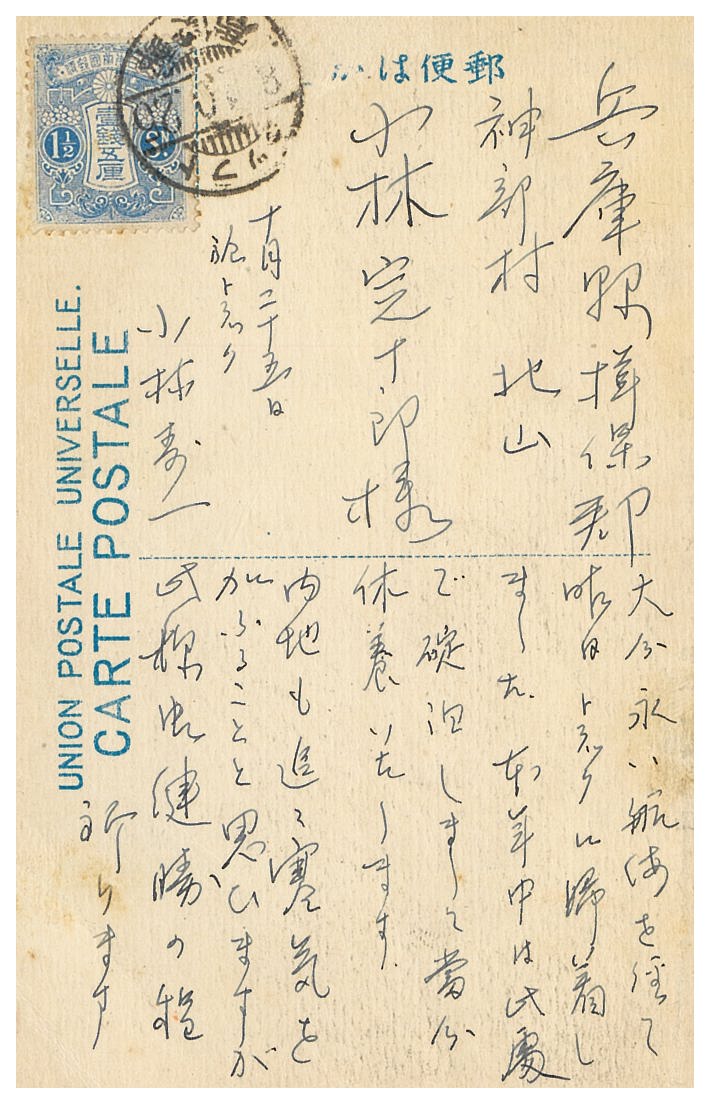 郵便はか
兵庫縣揖保郡
神部村 北山
小林完十郎様
十月二十五日
於トラック
小林寿一
大分永い航海を経て
昨日トラックに歸着し
ました。本年中は此處
で碇泊しまして當分
休養いたします.
内地も追々寒気を
加ふることと思ひますが
御健勝の程
祈ります
UNION POSTALE UNIVERSELLE.
CARTE POSTALE
壹錢五厘
1½